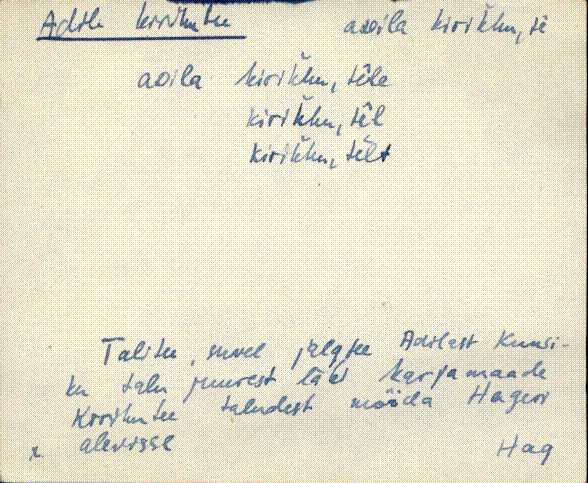 Adila kirikutee aoila kirikku, tê
aoila kirikku, têle
kirikku, têl
kirikku, têlt
Talitee, suvel jalgtee Adilast Kuusi-
ku talu juurest läbi karjamaade
Kirikutee taludest mööda Hageri
x alevisse Hag